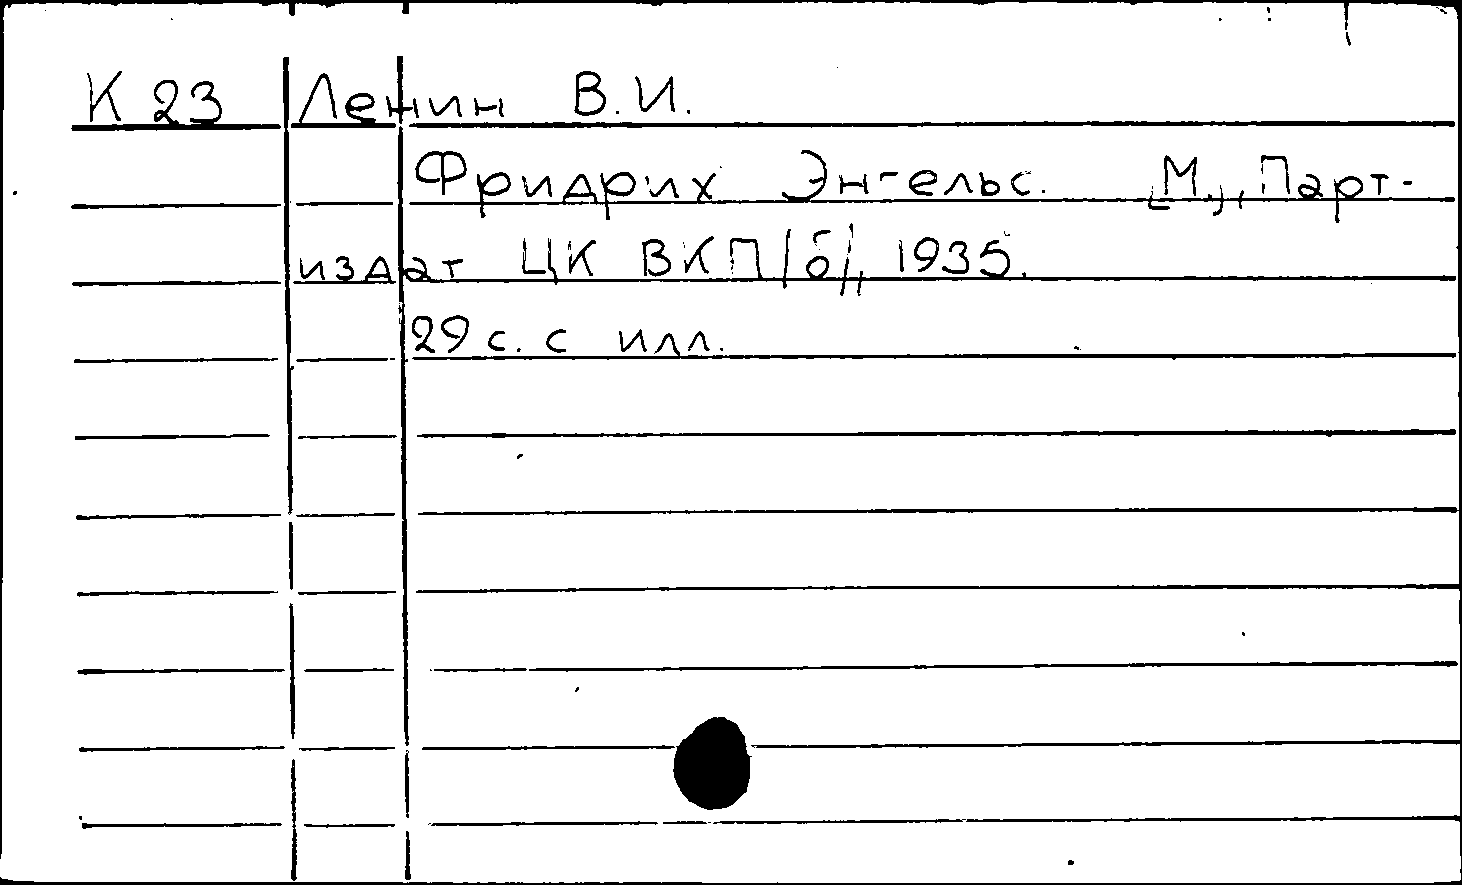 К 23 Ленин В.И.
Фридрих Энгельс. [М.], Парт-
издат ЦК ВКП/б/, 1935.
29 с. с илл.